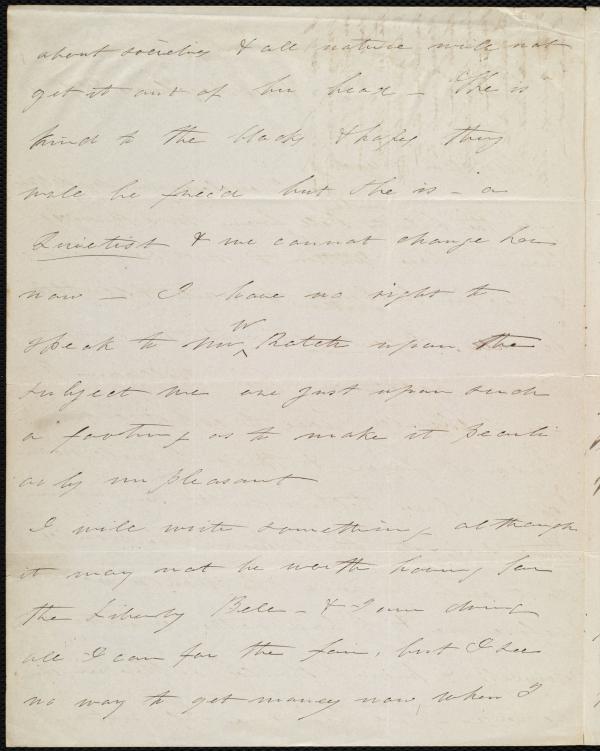 about societies & all nature will not
get it out of her head - She is
kind to the blacks & hopes they
will be free'd but she is - a
Quietist & we cannot change her
now - I have no right to
speak to Mr W Rotch upon the
subject we are just upon such
a footing as to make it peculi
arly unpleasant
I will write something although
it may not be worth having for
the Liberty Bell - & I am doing
all I can for the fair, but I see
no way to get money now, when I